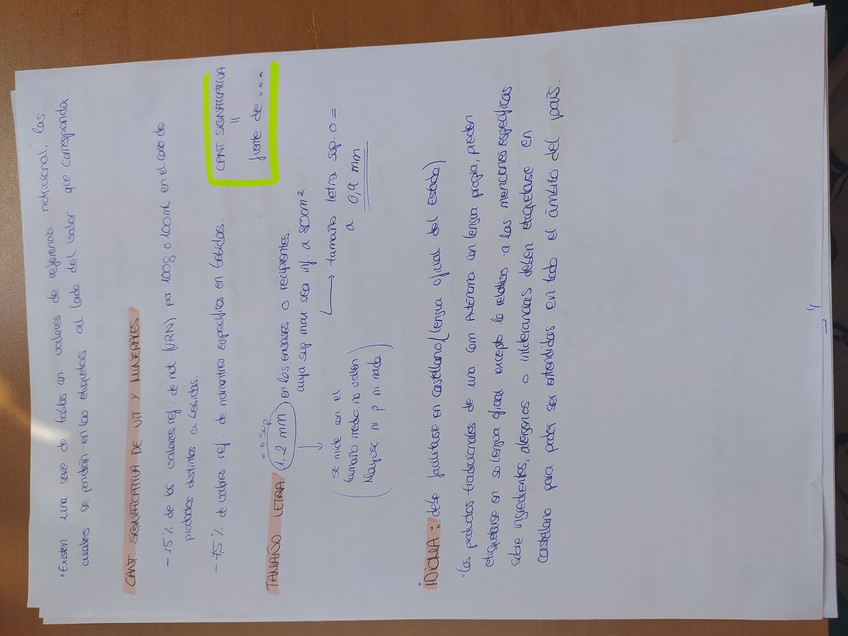 · Existen una serie de tablas con valores de referencia nutricional, las
cuales se pondrán en las etiquetas al lado del valor que corresponda.
CANT SIGNIFICATIVA DE VIT Y MINERALES
- 15% de los valores ref. de nut (VRN) por 100g o 100mL en el caso de
productos distintos a bebidas.
- 7,5% de valores ref. de nutrientes específica en bebidas.
CANT SIGNIFICATIVA
=
fuente de...
TAMAÑO LETRA
= o sup
1,2 mm en los envases o recipientes,
cuya sup max sea inf. a 80cm²
→ tamaño letra sup. o =
a 0,9 mm
↓
(se mide en el
tamaño medio, no valen
Mayusc ni p ni nada)
IDIOMA: debe facilitarse en castellano (lengua oficial del estado)
· Los productos tradicionales de una com Autónoma con lengua propia, pueden
etiquetarse en su lengua oficial excepto lo relativo a las menciones específicas
sobre ingredientes, alérgenos o intolerancias deben etiquetarse en
castellano para poder ser entendidas en todo el ámbito del país.